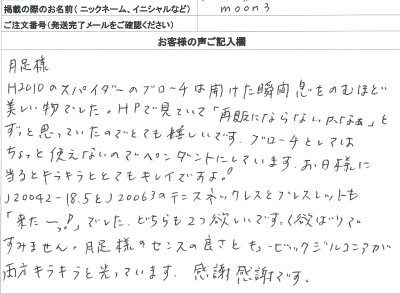 掲載の際のお名前（ニックネーム、イニシャルなど）
moon3
ご注文番号（発送完了メールをご確認ください）
お客様の声ご記入欄
月足様
H2010のスパイダーのブローチは開けた瞬間息をのむほど
美しい物でした。HPで見ていて「再販にならないかなぁ」と
ずっと思っていたのでとても嬉しいです。ブローチとしては
ちょっと使えないのでペンダントにしています。お日様に
当るとキラキラととてもキレイですよ。
J20042-18.5とJ20063のテニスネックレスとブレスレットも
「来たーっ!」でした。どちらも2つ欲しいです。(欲ばりで)
すみません。月足様のセンスの良さとキュービックジルコニアが
両方キラキラと光っています。感謝感謝です。